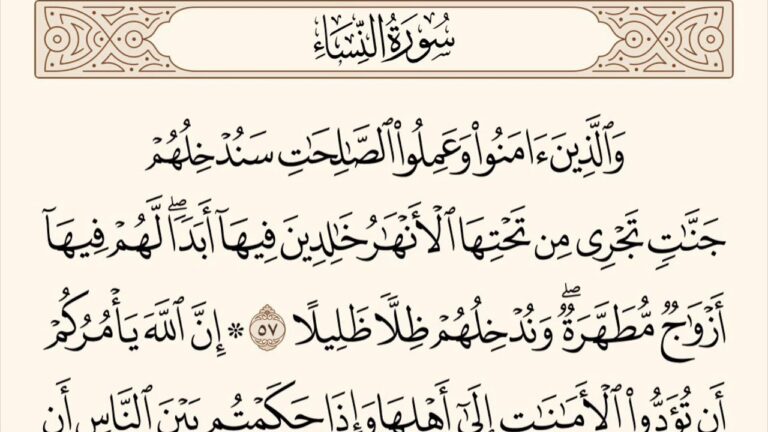 سُورَةُ النِّسَاءِ
وَٱلَّذِينَ ءَامَنُوا۟ وَعَمِلُوا۟ ٱلصَّـٰلِحَـٰتِ سَنُدْخِلُهُمْ
جَنَّـٰتٍ تَجْرِى مِن تَحْتِهَا ٱلْأَنْهَـٰرُ خَـٰلِدِينَ فِيهَآ أَبَدًا ۖ لَّهُمْ فِيهَآ
أَزْوَٰجٌ مُّطَهَّرَةٌ ۖ وَنُدْخِلُهُمْ ظِلًّا ظَلِيلًا ٥٧ * إِنَّ ٱللَّهَ يَأْمُرُكُمْ
أَن تُؤَدُّوا۟ ٱلْأَمَـٰنَـٰتِ إِلَىٰٓ أَهْلِهَا وَإِذَا حَكَمْتُم بَيْنَ ٱلنَّاسِ أَن